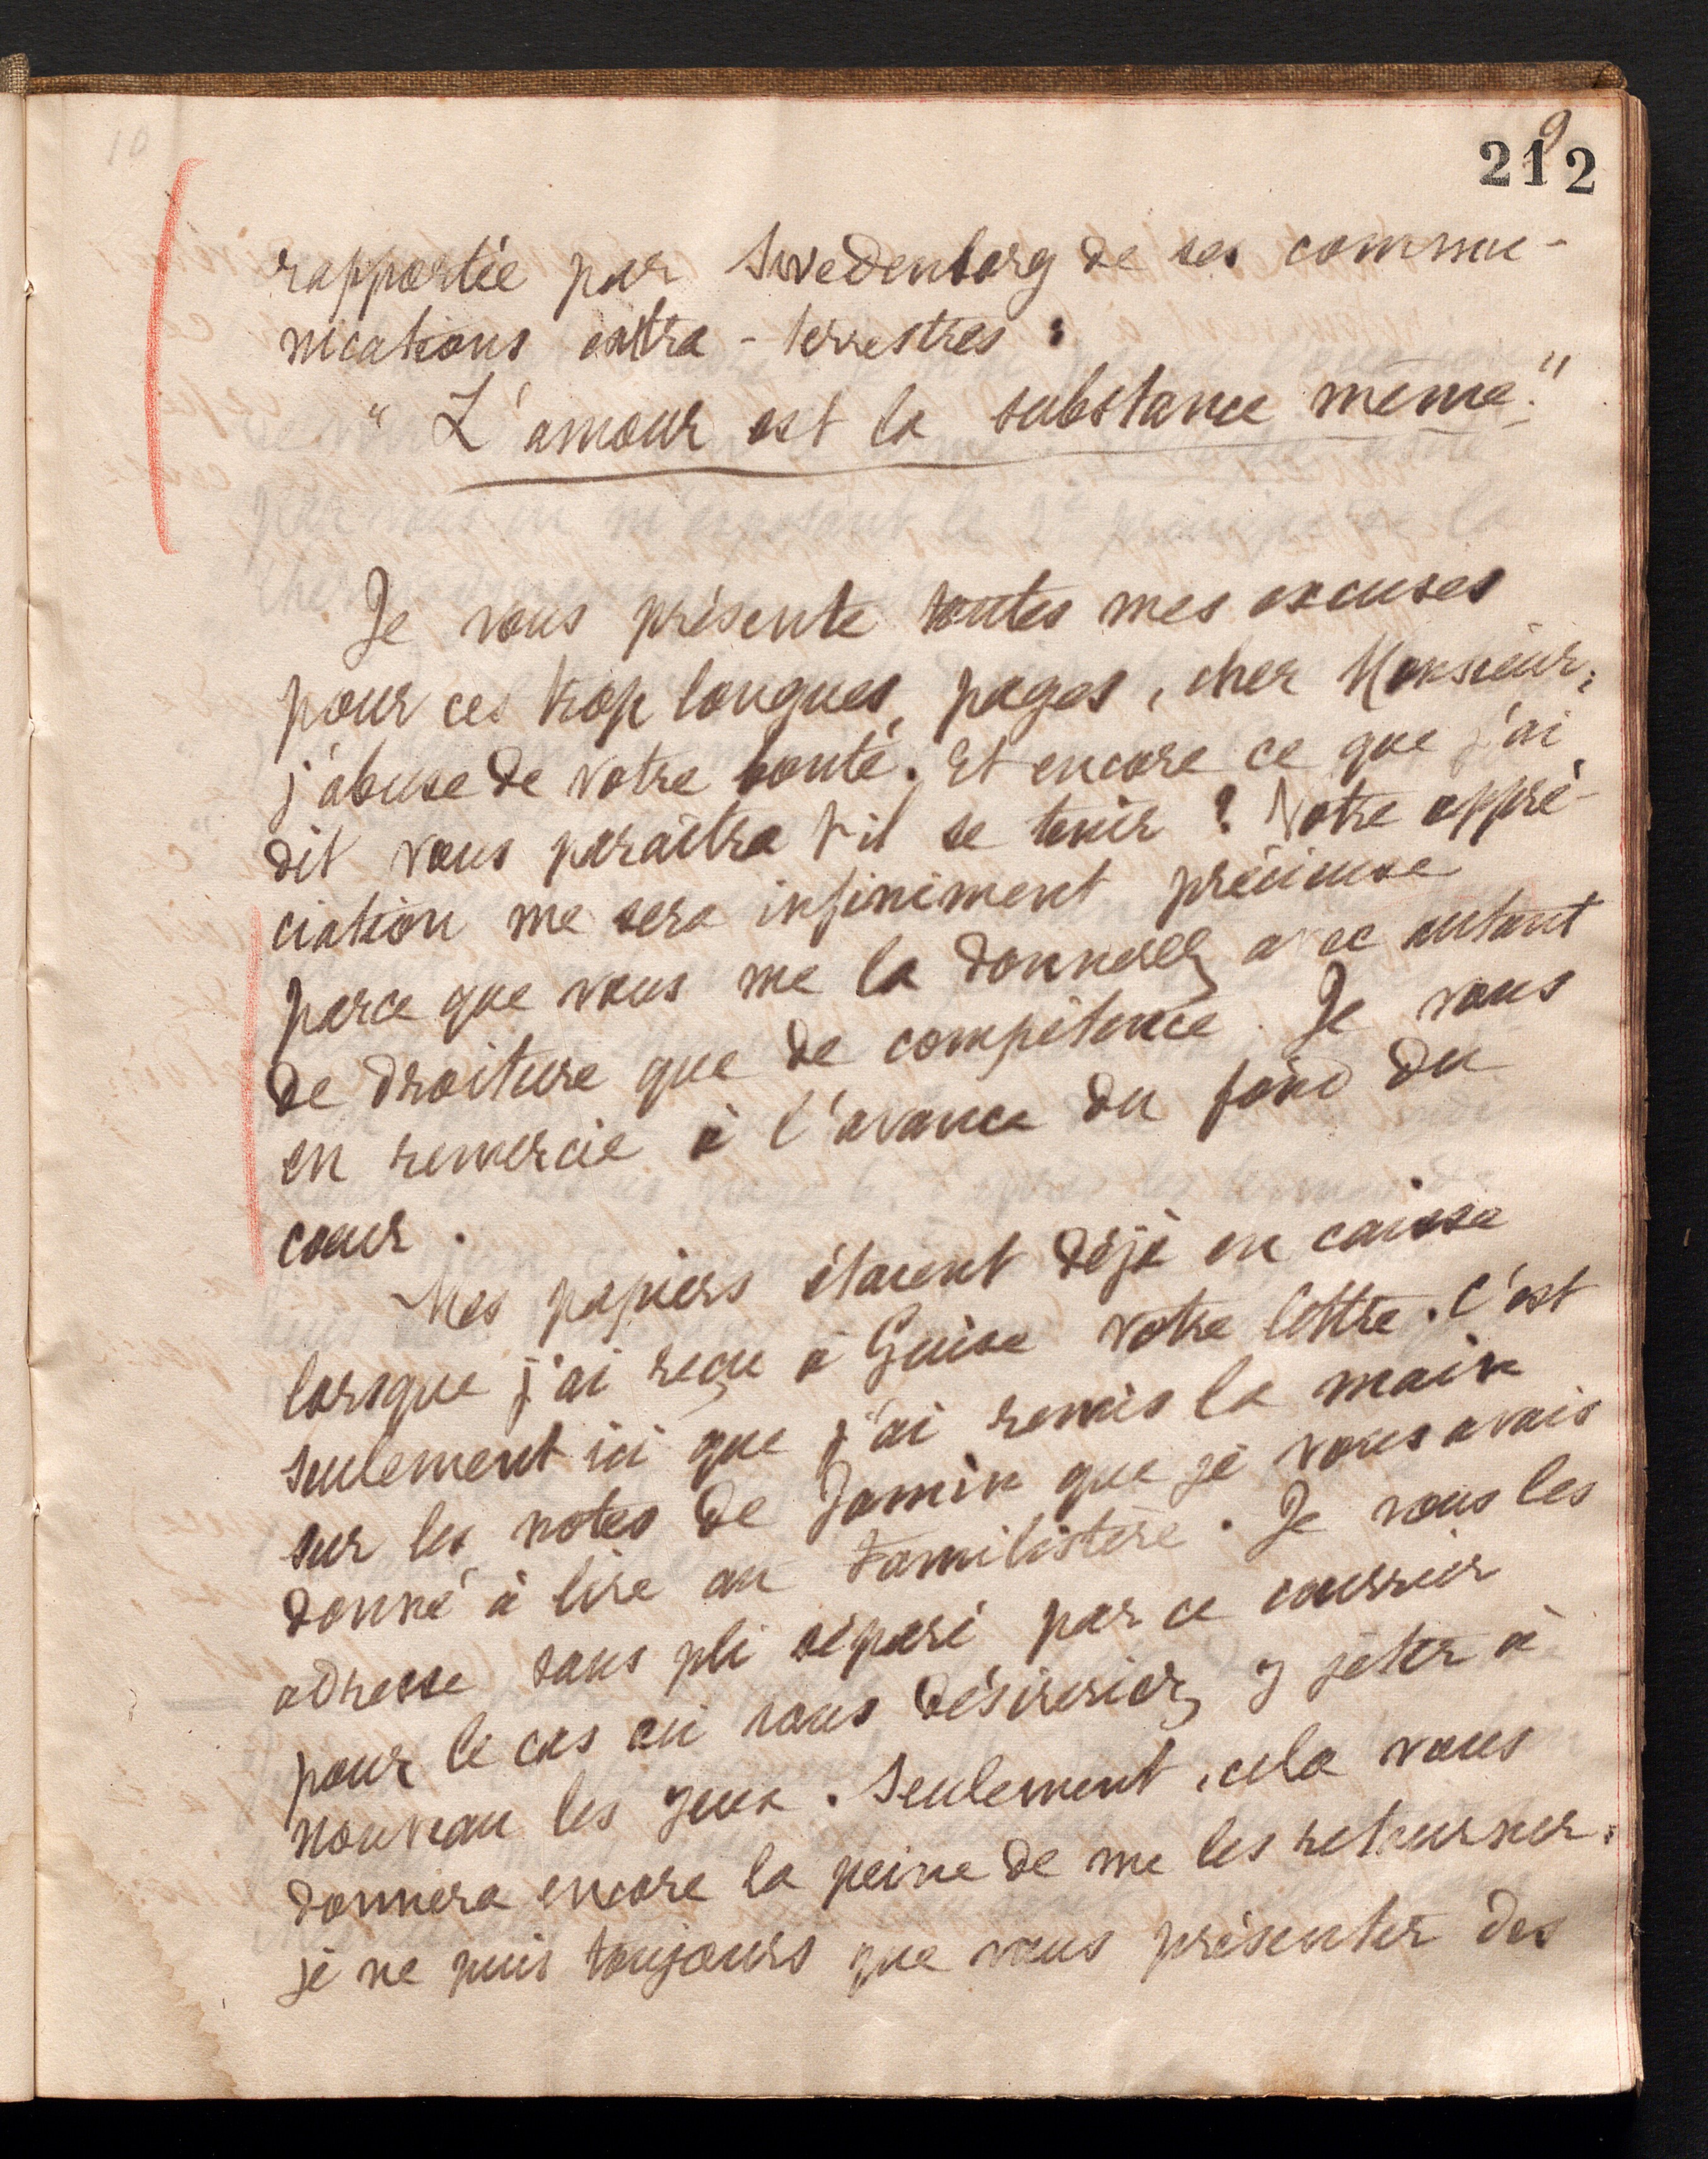 10
9
212
rapportée par Swedenborg de ses commu-
nications extra-terrestres :
" L'amour est la substance même."
Je vous présente toutes mes excuses
pour ces trop longues, pages, cher Monsieur ;
j'abuse de votre bonté. Et encore ce que j'ai
dit vous paraîtra t-il se tenir ? Votre appré-
ciation me sera infiniment précieuse
parce que vous me la donnerez avec autant
de droiture que de compétence. Je vous
en remercie à l'avance du fond du
cœur.
Mes papiers étaient déjà en caisse
lorsque j'ai reçu à Guise votre lettre. C'est
seulement ici que j'ai remis la main
sur les notes de Jamin que je vous avais
donné à lire au Familistère. Je vous les
adresse sous pli séparé par ce courrier
pour le cas où vous désireriez y jeter à
nouveau les yeux. Seulement, cela vous
donnera encore la peine de me les retourner :
je ne puis toujours que vous présenter des